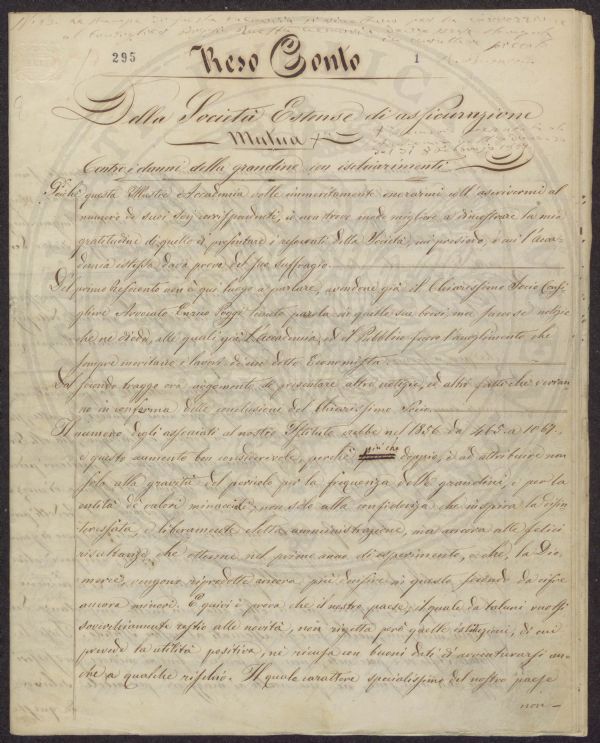 295
1
Reso Conto
Della Società Estense di assicurazione
Mutua
Contro i danni della grandine con ischiarimenti
Poiché questa Illustre Accademia volle immeritamente onorarmi coll'ascrivermi al
numero de suoi Socj corrispondenti, io non trovo modo migliore a dimostrare la mia
gratitudine di quello di presentare i resoconti della Società, cui presiedo, e cui l'Acca-
demia istessa dava prova del suo suffragio.
Del primo Resoconto non è qui luogo a parlare, avendone già il Chiarissimo Socio Consi-
gliere Avvocato Enrico Poggi tenuto parola in quelle sue brevi, ma succose notizie
che ne diede, alle quali già l'Accademia, ed il Pubblico fecero l'accoglimento che
sempre meritano i lavori di un dotto Economista.
Dal secondo traggo ora argomento di presentare altre notizie, ed altri fatti che verran-
no in conferma delle conclusioni del Chiarissimo Socio.
Il numero degli associati al nostro Istituto crebbe nel 1856 da 465 a 1067.
e questo aumento ben considerevole, perché più che doppio, è ad attribuire non
solo alla gravità del pericolo per la frequenza delle grandini, e per la
entità de' valori minacciati, non solo alla confidenza che inspira la disin-
teressata, e liberamente eletta amministrazione, ma ancora alle felici
risultanze, che ottenne nel primo anno di esperimento, e che, la Dio
mercé, vengono riprodotte ancora più
ancora minori. E quivi è prova che il nostro paese, il quale da taluni vuolsi
soverchiamente restio alle novità, non rigetta però quelle istituzioni, di cui
prevede la utilità positiva, né ricusa con buoni dati di avventurarsi an-
che a qualche rischio. Il quale carattere specialissimo del nostro paese
non-